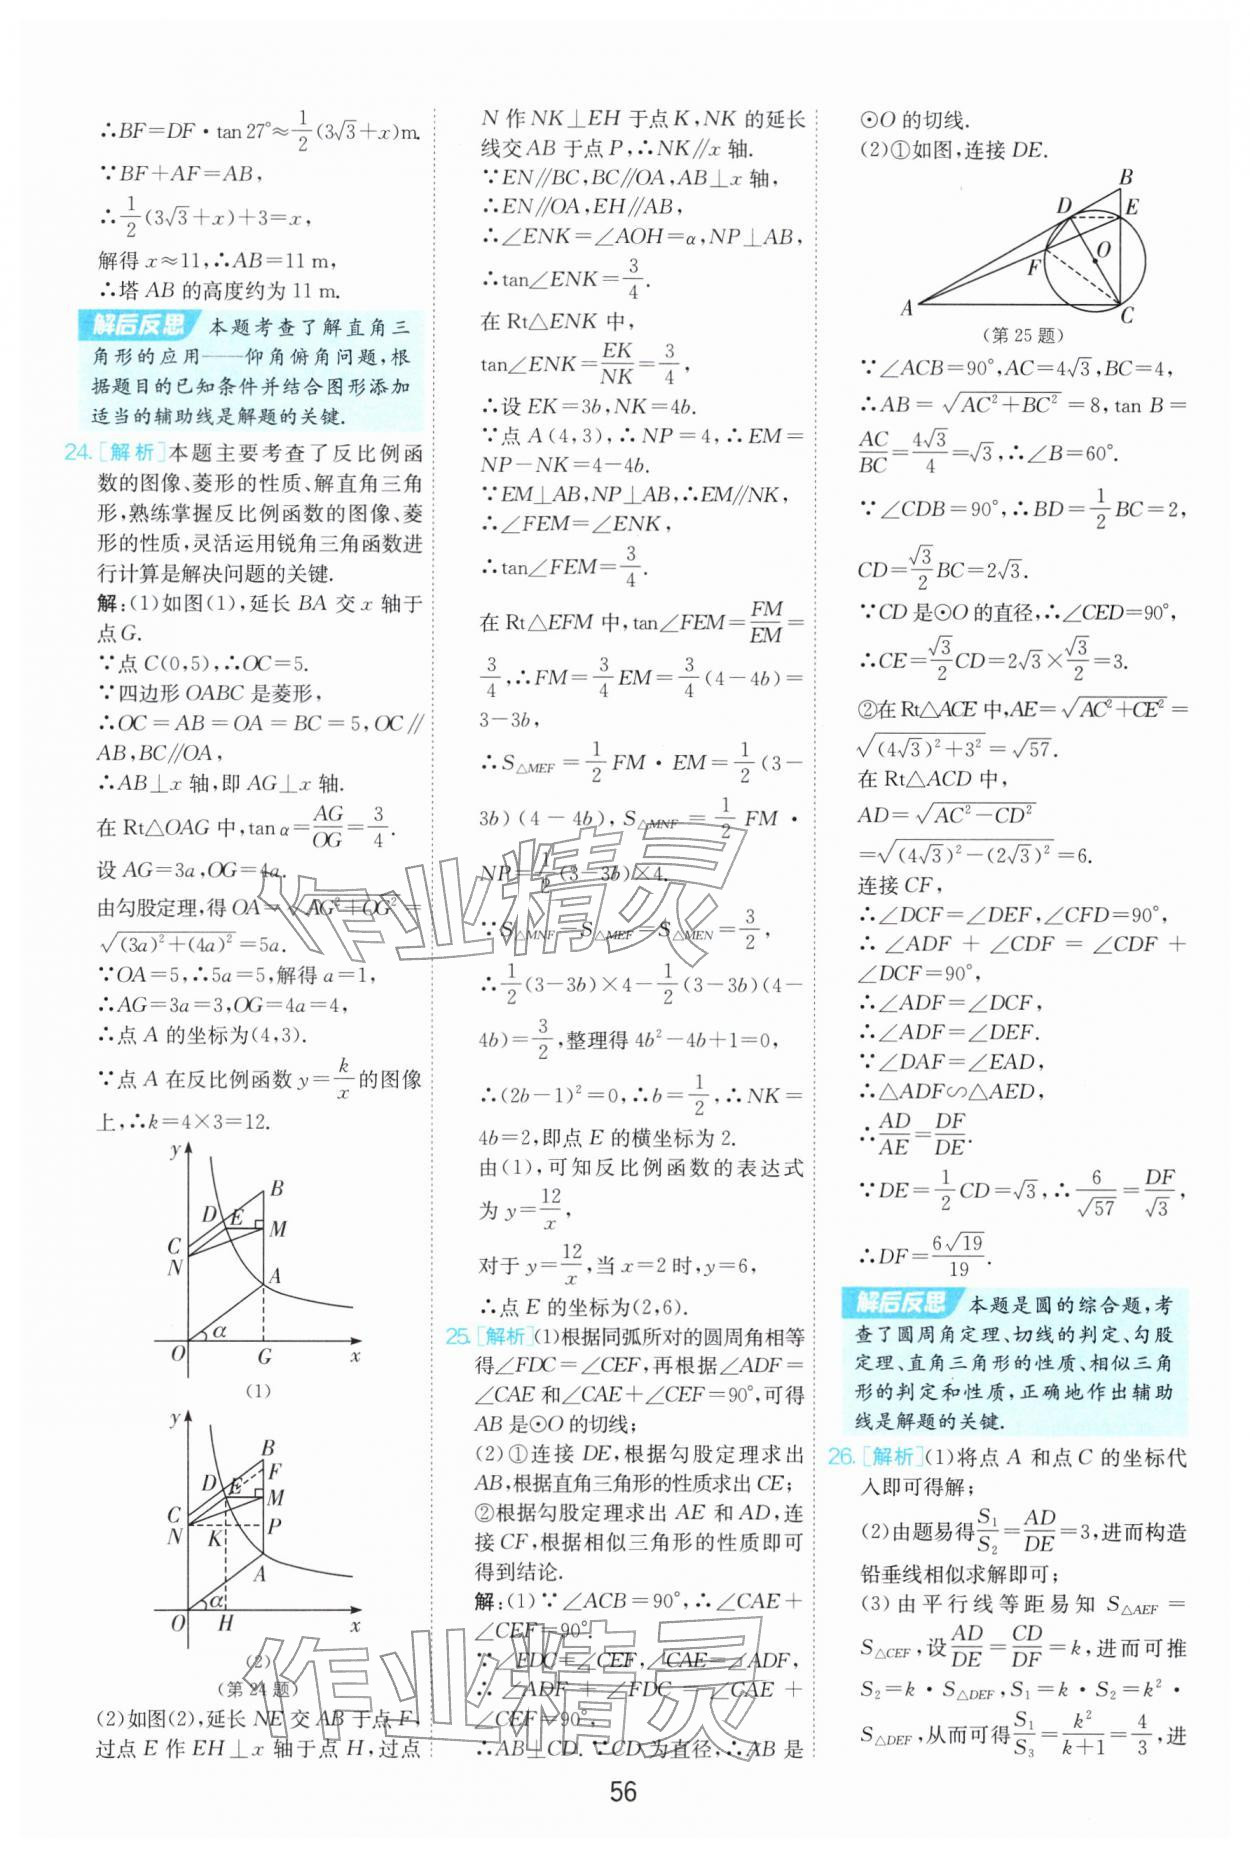 ∴BF=DF·tan 27°≈1/2(3√3+x)m.
∵BF+AF=AB,
∴1/2(3√3+x)+3=x,
解得 x≈11,∴AB=11 m,
∴塔 AB 的高度约为 11 m.
解后反思 本题考查了解直角三
角形的应用——仰角俯角问题,根
据题目的已知条件并结合图形添加
适当的辅助线是解题的关键.
24.[解析]本题主要考查了反比例函
数的图像、菱形的性质、解直角三角
形,熟练掌握反比例函数的图像、菱
形的性质,灵活运用锐角三角函数进
行计算是解决问题的关键.
解:(1)如图(1),延长 BA 交 x 轴于
点G.
∵点 C(0,5),∴OC=5.
∵四边形 OABC 是菱形,
∴OC=AB=OA=BC=5,OC∥
AB,BC∥OA,
∴AB⊥x 轴,即 AG⊥x 轴.
在 Rt△OAG 中,tan α=AG/OG=3/4.
设 AG=3a,OG=4a.
由勾股定理,得 OA=√(AG²+OG²)=
√((3a)²+(4a)²)=5a.
∵OA=5,∴5a=5,解得 a=1,
∴AG=3a=3,OG=4a=4,
∴点 A 的坐标为(4,3).
∵点 A 在反比例函数 y=k/x 的图像
上,∴k=4×3=12.
y
B
D
E
M
C
N
A
α
O
G
x
(1)
y
B
F
D
E
M
C
N
K
P
A
α
O
H
x
(2)
(第 24 题)
(2)如图(2),延长 NE 交 AB 于点 F,
过点 E 作 EH⊥x 轴于点 H,过点
N 作 NK⊥EH 于点 K,NK 的延长
线交 AB 于点 P,∴NK∥x 轴.
∵EN∥BC,BC∥OA,AB⊥x 轴,
∴EN∥OA,EH∥AB,
∴∠ENK=∠AOH=α,NP⊥AB,
∴tan∠ENK=3/4.
在 Rt△ENK 中,
tan∠ENK=EK/NK=3/4,
∴设 EK=3b,NK=4b.
∵点 A(4,3),∴NP=4,∴EM=
NP-NK=4-4b.
∵EM⊥AB,NP⊥AB,∴EM∥NK,
∴∠FEM=∠ENK,
∴tan∠FEM=3/4.
在 Rt△EFM 中,tan∠FEM=FM/EM=
3/4,∴FM=3/4EM=3/4(4-4b)=
3-3b,
∴S△MEF=1/2FM·EM=1/2(3-
3b)(4-4b),S△MNF=1/2FM·
NP=1/2(3-3b)×4.
∵S△MNF-S△MEF=S△MEN=3/2,
∴1/2(3-3b)×4-1/2(3-3b)(4-
4b)=3/2,整理得 4b²-4b+1=0,
∴(2b-1)²=0,∴b=1/2,∴NK=
4b=2,即点 E 的横坐标为 2.
由(1),可知反比例函数的表达式
为 y=12/x,
对于 y=12/x,当 x=2 时,y=6,
∴点 E 的坐标为(2,6).
25.[解析](1)根据同弧所对的圆周角相等
得∠FDC=∠CEF,再根据∠ADF=
∠CAE 和∠CAE+∠CEF=90°,可得
AB 是⊙O 的切线;
(2)①连接 DE,根据勾股定理求出
AB,根据直角三角形的性质求出 CE;
②根据勾股定理求出 AE 和 AD,连
接 CF,根据相似三角形的性质即可
得到结论.
解:(1)∵∠ACB=90°,∴∠CAE+
∠CEF=90°.
∵∠FDC=∠CEF,∠CAE=∠ADF,
∴∠ADF+∠FDC=∠CAE+
∠CEF=90°,
∴AB⊥CD.∵CD 为直径,∴AB 是
⊙O 的切线.
(2)①如图,连接 DE.
B
D
E
O
F
A
C
(第 25 题)
∵∠ACB=90°,AC=4√3,BC=4,
∴AB=√(AC²+BC²)=8,tan B=
AC/BC=4√3/4=√3,∴∠B=60°.
∵∠CDB=90°,∴BD=1/2BC=2,
CD=√3/2BC=2√3.
∵CD 是⊙O 的直径,∴∠CED=90°,
∴CE=√3/2CD=2√3×√3/2=3.
②在 Rt△ACE 中,AE=√(AC²+CE²)=
√((4√3)²+3²)=√57.
在 Rt△ACD 中,
AD=√(AC²-CD²)
=√((4√3)²-(2√3)²)=6.
连接 CF,
∴∠DCF=∠DEF,∠CFD=90°,
∴∠ADF+∠CDF=∠CDF+
∠DCF=90°,
∴∠ADF=∠DCF,
∴∠ADF=∠DEF.
∵∠DAF=∠EAD,
∴△ADF∽△AED,
∴AD/AE=DF/DE.
∵DE=1/2CD=√3,∴6/√57=DF/√3,
∴DF=6√19/19.
解后反思 本题是圆的综合题,考
查了圆周角定理、切线的判定、勾股
定理、直角三角形的性质、相似三角
形的判定和性质,正确地作出辅助
线是解题的关键.
26.[解析](1)将点 A 和点 C 的坐标代
入即可得解;
(2)由题易得S₁/S₂=AD/DE=3,进而构造
铅垂线相似求解即可;
(3)由平行线等距易知 S△AEF=
S△CEF,设AD/DE=CD/DF=k,进而可推
S₂=k·S△DEF,S₁=k·S₂=k²·
S△DEF,从而可得S₁/S₃=k²/(k+1)=4/3,进
作业精灵
作业精灵
56